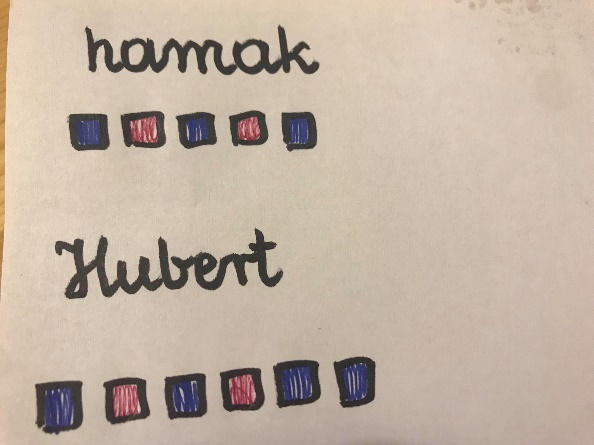 hamak
Hubert